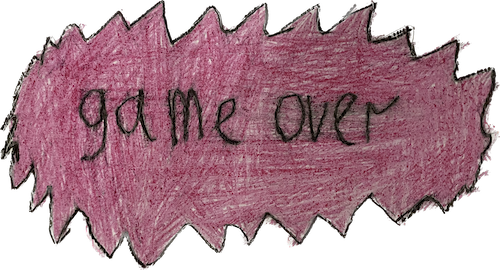 game over